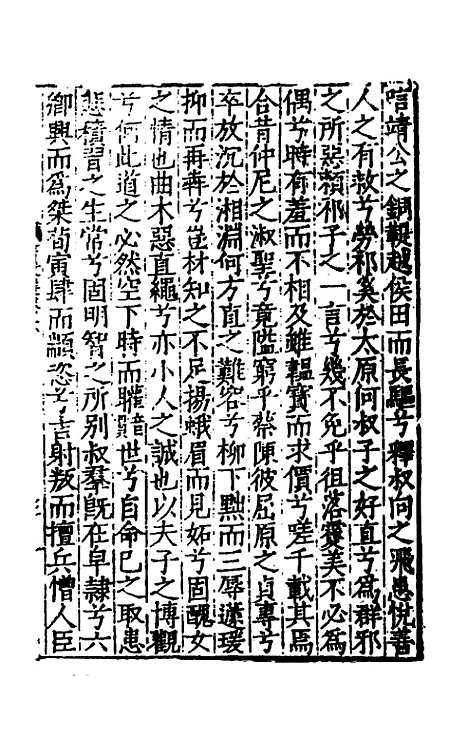 唁靖公之銅鞮越侯田而長驅兮釋叔向之飛患悅善
人之有救兮勞祁奚於太原何叔子之好直兮為群邪
之所惡賴祁子之一言兮幾不免乎徂落美不必為
偶兮時有羞而不相及雖韞寶而求價兮嗟千載其焉
合昔仲尼之淑聖兮竟隘窮乎蔡陳彼屈原之貞專兮
卒放沉於湘淵何方直之難容兮柳下黜而三辱蘧瑗
抑而再奔兮豈材知之不足揚蛾眉而見妬兮固醜女
之情也曲木惡直繩兮亦小人之誠也以夫子之博觀
兮何此道之必然空下時而世兮自命己之取患
悲積習之生常兮固明智之所別叔羣既在皁隸兮六
卿興而為桀荀寅肆而顓恣兮吉射叛而擅兵憎人臣